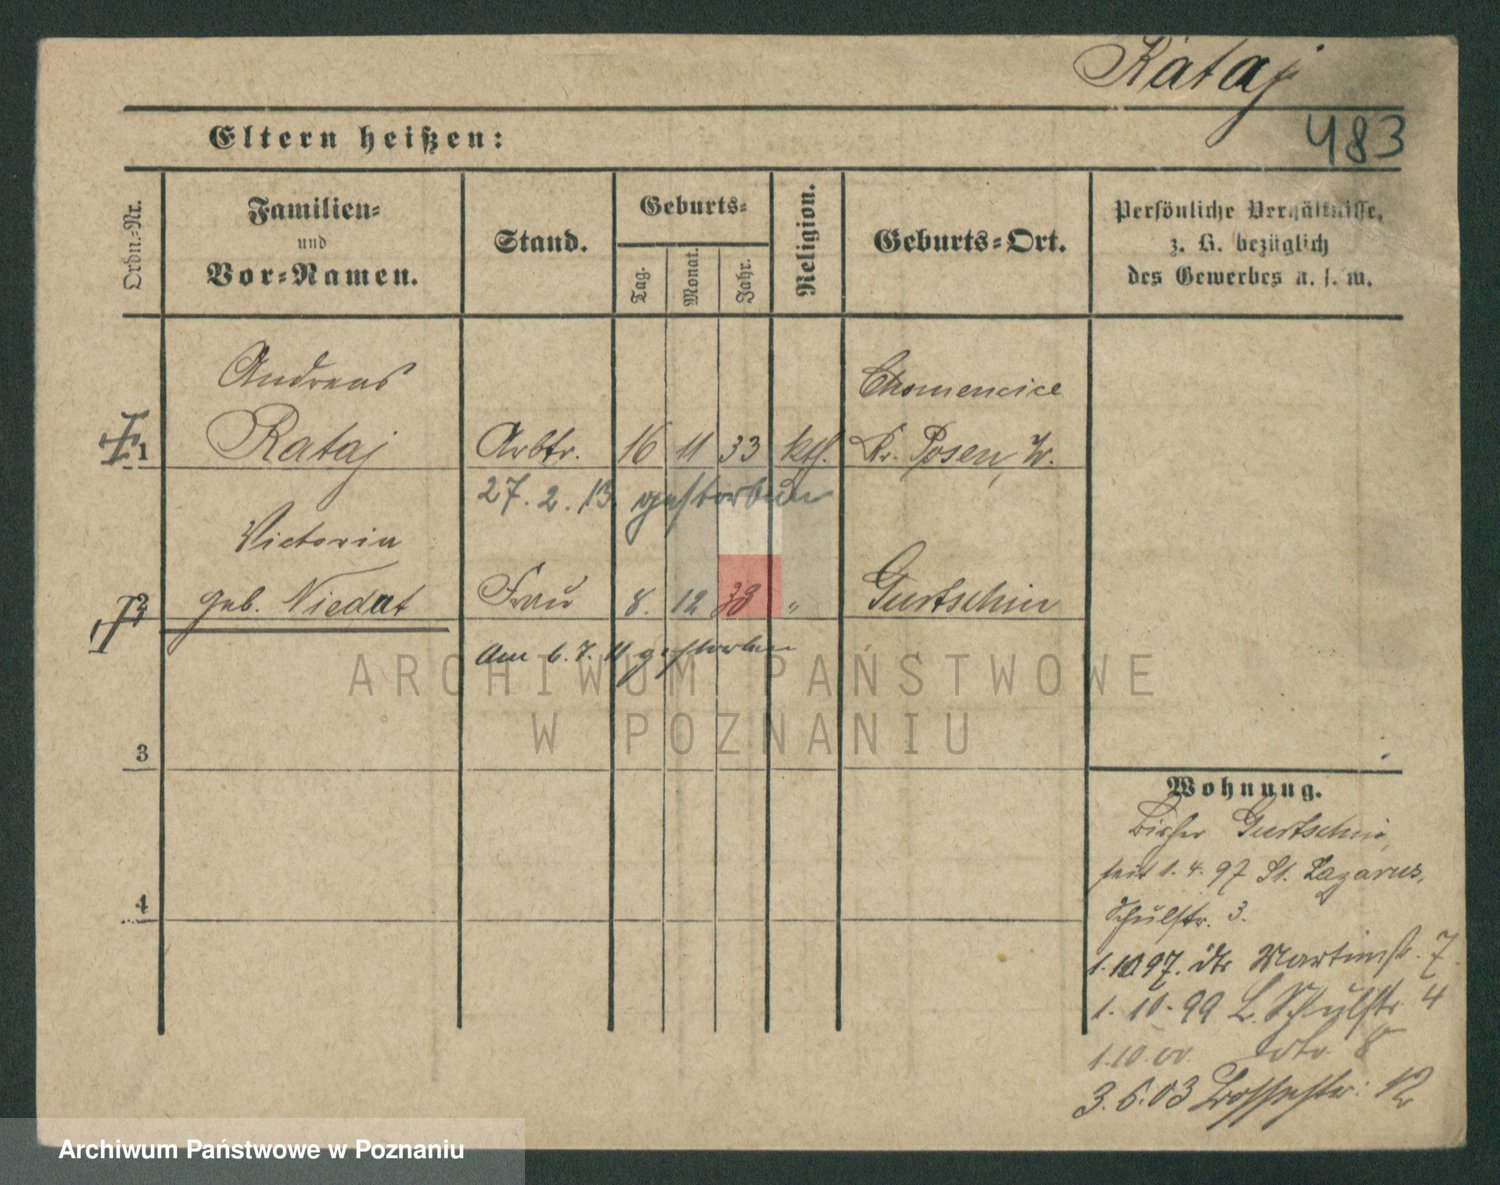 Rataj
483
Eltern heißen:
Ordn.-Nr.
Familien-
und
Vor-Namen.
Stand.
Geburts-
Tag.
Monat.
Jahr.
Religion.
Geburts-Ort.
Persönliche Verhältnisse,
z. B. bezüglich
des Gewerbes u. s. w.
Andreas
Chomencice
1 Rataj Arbtr. 16 11 33 kth. Kr. Posen, W.
27. 2. 13. gestorben
Victoria
2 geb. Niedat Frau 8. 12 38 " Gurtschin
am 6. 7. 11 gestorben
ARCHIWUM PAŃSTWOWE
W POZNANIU
3
Wohnung.
Bisher Gurtschin,
seit 1. 4. 97 St. Lazarus,
Schulstr. 3.
4
1.10 97. dto Martinstr. 7
1. 10. 99 L. Schulstr 4
1.10 00 dto 8
3. 6. 03 12
Archiwum Państwowe w Poznaniu